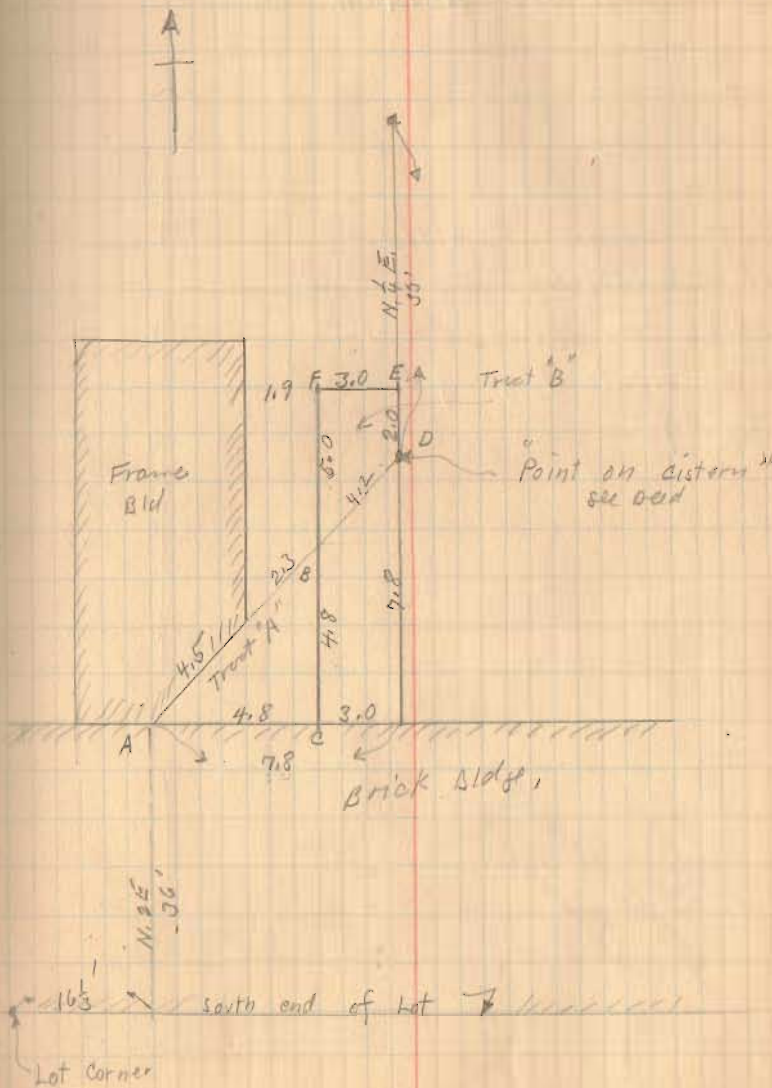 A
N. ¼ E.
35'
F 3.0 E
1.9
Tract "B"
2.0
D
5.0
4.2
"Point on cistern"
see deed
Frame
Bld
2.3
B
4.8
7.8
4.5
Tract "A"
4.8
3.0
A
C
7.8
Brick Bldg,
36'
16⅓'
South end of Lot
Lot Corner